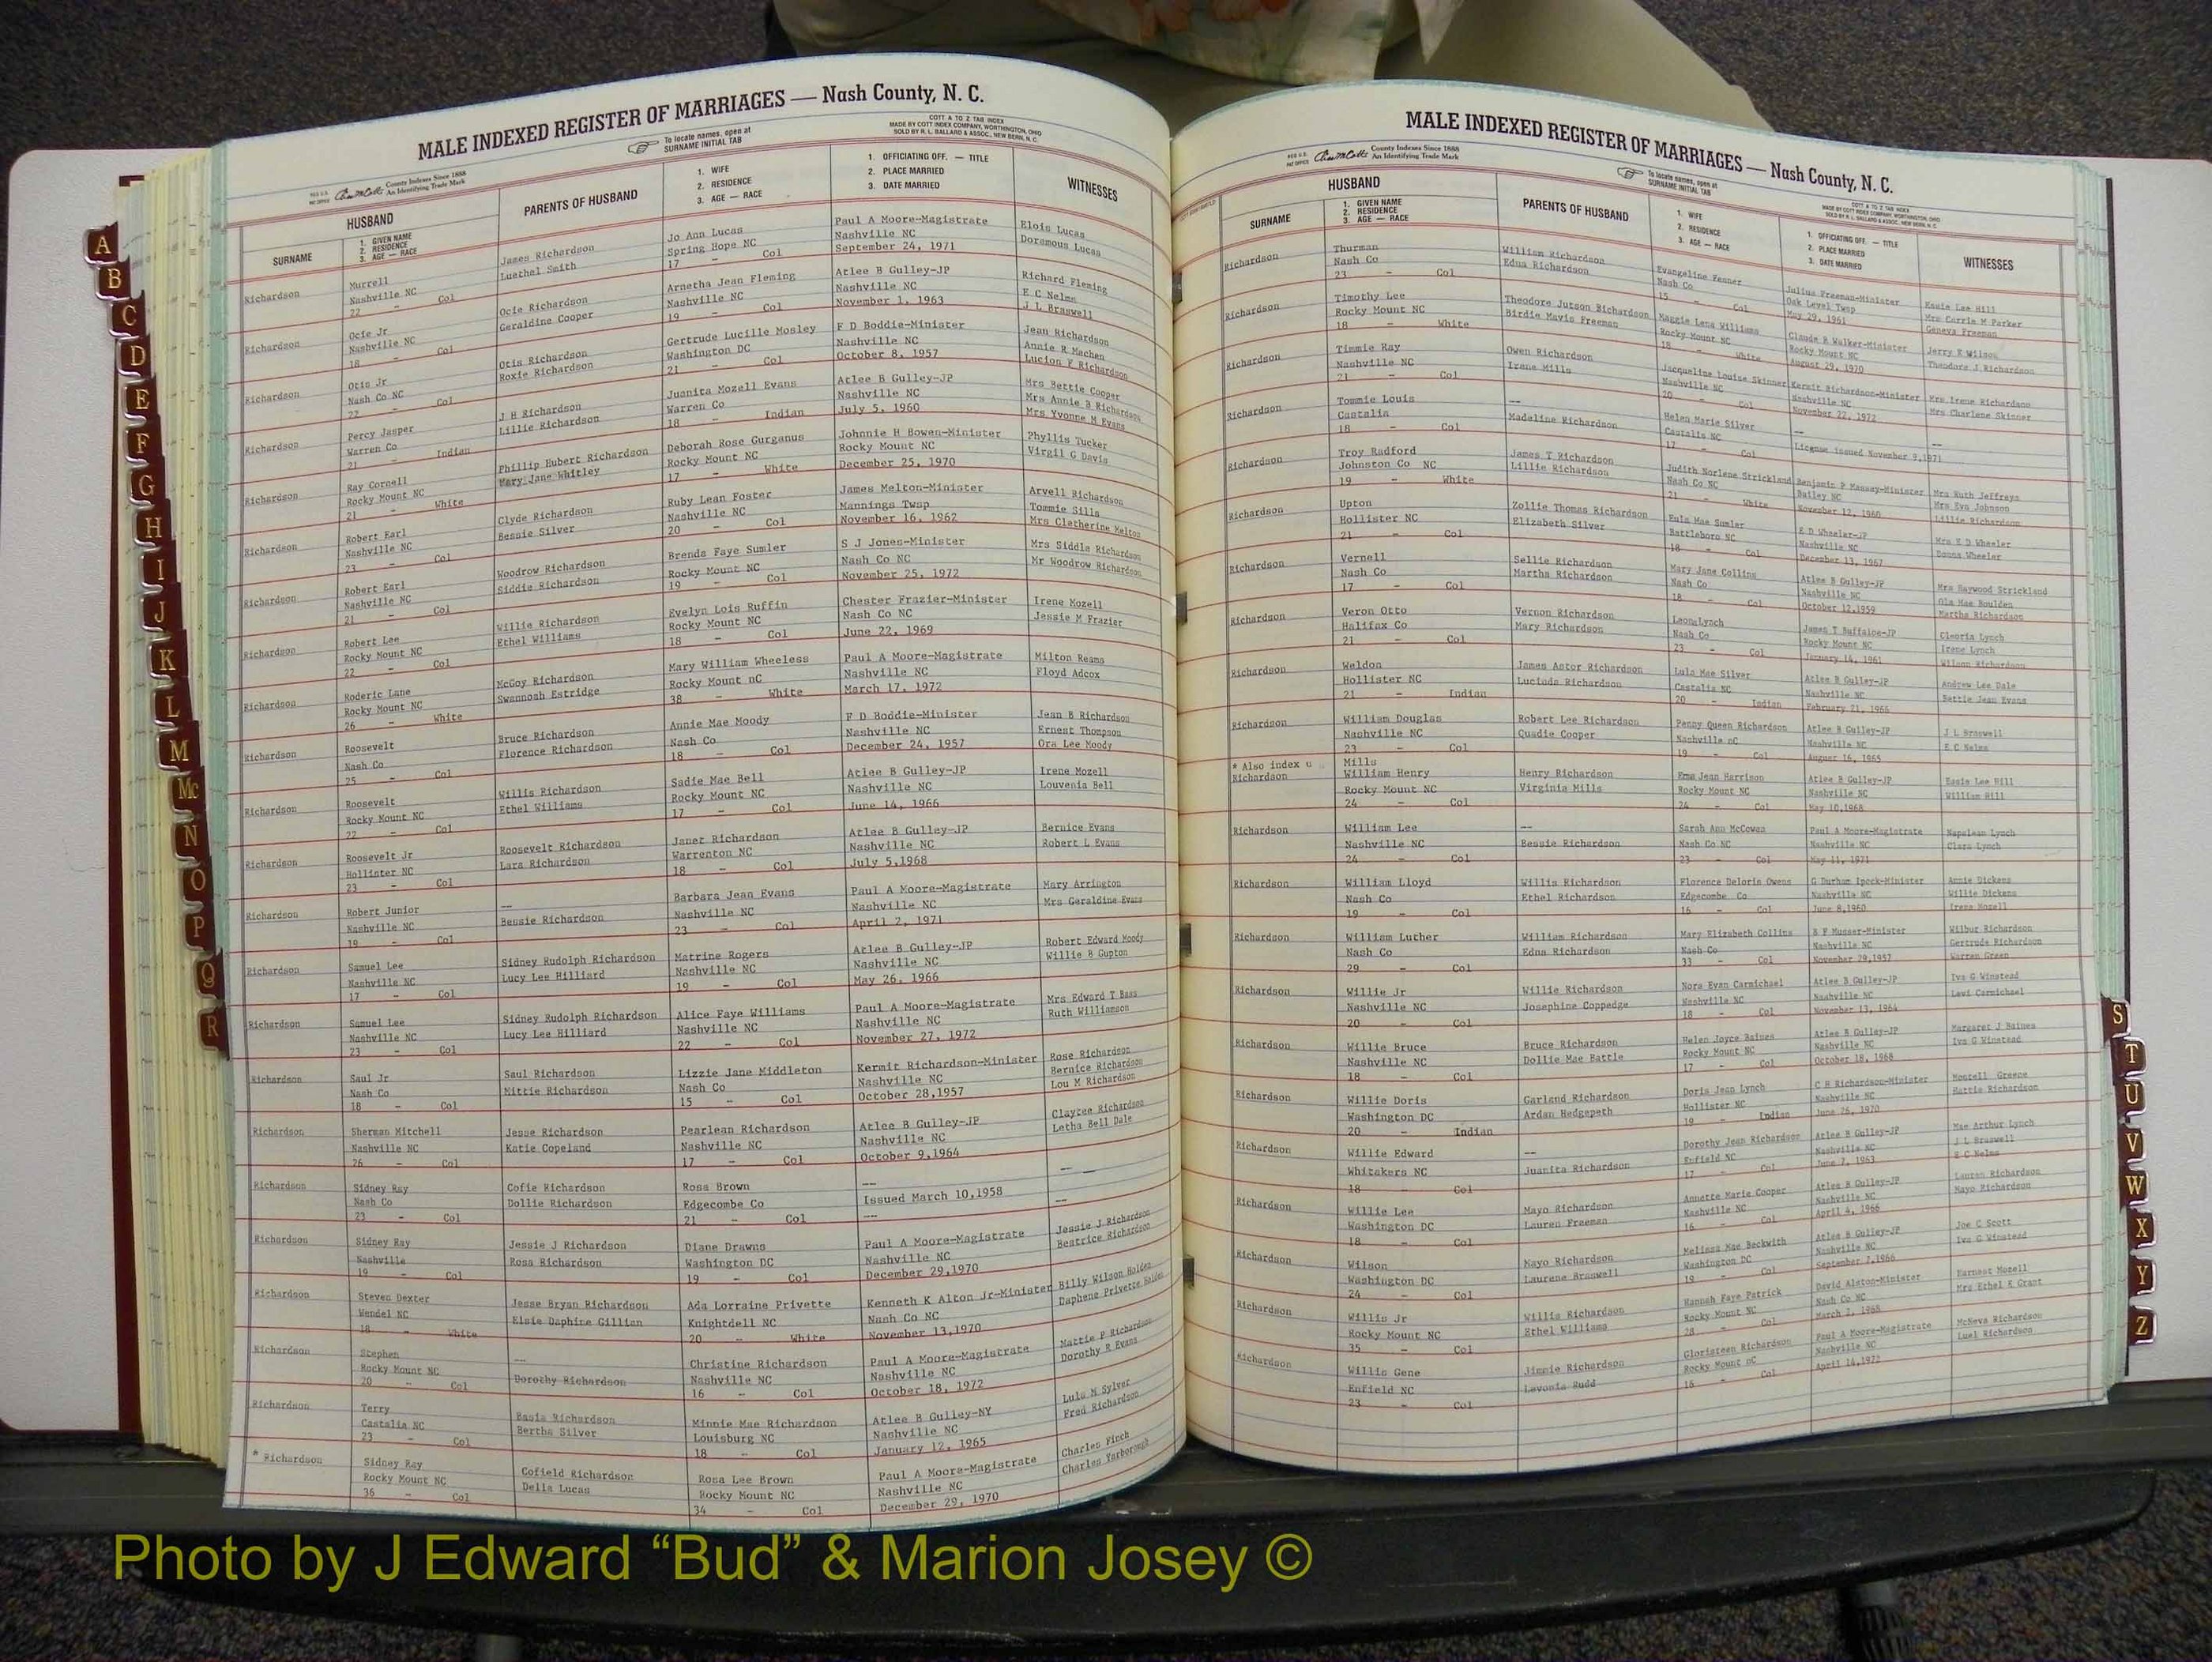 MALE INDEXED REGISTER OF MARRIAGES — Nash County, N. C.
To locate names, open at
SURNAME INITIAL TAB
COTT A TO Z TAB INDEX
MADE BY COTT INDEX COMPANY, WORTHINGTON, OHIO
SOLD BY R. L. BALLARD & ASSOC., NEW BERN, N. C.
County Indexes Since 1888
An Identifying Trade Mark
HUSBAND
SURNAME
1. GIVEN NAME
2. RESIDENCE
3. AGE — RACE
PARENTS OF HUSBAND
1. WIFE
2. RESIDENCE
3. AGE — RACE
1. OFFICIATING OFF. — TITLE
2. PLACE MARRIED
3. DATE MARRIED
WITNESSES
Richardson Murrell James Richardson Jo Ann Lucas Paul A Moore-Magistrate Elois Lucas
Nashville NC Luethel Smith Spring Hope NC Nashville NC Doramous Lucas
22 - Col 17 - Col September 24, 1971
Richardson Ocie Jr Ocie Richardson Arnetha Jean Fleming Atlee B Gulley-JP Richard Fleming
Nashville NC Geraldine Cooper Nashville NC Nashville NC E C Nelms
18 - Col 19 - Col November 1, 1963 J L Braswell
Richardson Otis Jr Otis Richardson Gertrude Lucille Mosley F D Boddie-Minister Jean Richardson
Nash Co NC Roxie Richardson Washington DC Nashville NC Annie R Machen
22 - Col 21 - Col October 8, 1957 Lucion F Richardson
Richardson Percy Jasper J H Richardson Juanita Mozell Evans Atlee B Gulley-JP Mrs Bettie Cooper
Warren Co Lillie Richardson Warren Co Nashville NC Mrs Annie B Richardson
21 Indian 18 - Indian July 5, 1960 Mrs Yvonne M Evans
Richardson Ray Cornell Phillip Hubert Richardson Deborah Rose Gurganus Johnnie H Bowen-Minister Phyllis Tucker
Rocky Mount NC Mary Jane Whitley Rocky Mount NC Rocky Mount NC Virgil G Davis
21 - White 17 - White December 25, 1970
Richardson Robert Earl Clyde Richardson Ruby Lean Foster James Melton-Minister Arvell Richardson
Nashville NC Bessie Silver Nashville NC Mannings Twsp Tommie Sills
23 - Col 20 - Col November 16, 1962 Mrs Cletherine Melton
Richardson Robert Earl Woodrow Richardson Brenda Faye Sumler S J Jones-Minister Mrs Siddle Richardson
Nashville NC Siddie Richardson Rocky Mount NC Nash Co NC Mr Woodrow Richardson
21 - Col 19 - Col November 25, 1972
Richardson Robert Lee Willie Richardson Evelyn Lois Ruffin Chester Frazier-Minister Irene Mozell
Rocky Mount NC Ethel Williams Rocky Mount NC Nash Co NC Jessie M Frazier
22 - Col 18 - Col June 22, 1969
Richardson Roderic Lane McGoy Richardson Mary William Wheeless Paul A Moore-Magistrate Milton Reams
Rocky Mount NC Swannosh Estridge Rocky Mount nC Nashville NC Floyd Adcox
26 - White 38 - White March 17, 1972
Richardson Roosevelt Bruce Richardson Annie Mae Moody F D Boddie-Minister Jean B Richardson
Nash Co Florence Richardson Nash Co Nashville NC Ernest Thompson
25 - Col 18 - Col December 24, 1957 Ora Lee Moody
Richardson Roosevelt Willis Richardson Sadie Mae Bell Atlee B Gulley-JP Irene Mozell
Rocky Mount NC Ethel Williams Rocky Mount NC Nashville NC Louvenia Bell
22 - Col 17 - Col June 14, 1966
Richardson Roosevelt Jr Roosevelt Richardson Janet Richardson Atlee B Gulley-JP Bernice Evans
Hollister NC Lara Richardson Warrenton NC Nashville NC Robert L Evans
23 - Col 18 - Col July 5,1968
Richardson Robert Junior -- Barbara Jean Evans Paul A Moore-Magistrate Mary Arrington
Nashville NC Bessie Richardson Nashville NC Nashville NC Mrs Geraldine Evans
19 - Col 23 - Col April 2, 1971
Richardson Samuel Lee Sidney Rudolph Richardson Matrine Rogers Atlee B Gulley-JP Robert Edward Moody
Nashville NC Lucy Lee Hilliard Nashville NC Nashville NC Willie B Gupton
17 - Col 19 - Col May 26, 1966
Richardson Samuel Lee Sidney Rudolph Richardson Alice Faye Williams Paul A Moore-Magistrate Mrs Edward T Bass
Nashville NC Lucy Lee Hilliard Nashville NC Nashville NC Ruth Williamson
23 - Col 22 - Col November 27, 1972
Richardson Saul Jr Saul Richardson Lizzie Jane Middleton Kermit Richardson-Minister Rose Richardson
Nash Co Mittie Richardson Nash Co Nashville NC Bernice Richardson
18 - Col 15 - Col October 28,1957 Lou M Richardson
Richardson Sherman Mitchell Jesse Richardson Pearlean Richardson Atlee B Gulley-JP Claytee Richardson
Nashville NC Katie Copeland Nashville NC Nashville NC Letha Bell Dale
26 - Col 17 - Col October 9,1964
Richardson Sidney Ray Cofie Richardson Rosa Brown -- -- --
Nash Co Dollie Richardson Edgecombe Co Issued March 10,1958
23 - Col 21 - Col -- --
Richardson Sidney Ray Jessie J Richardson Diane Drawns Paul A Moore-Magistrate Jessie J Richardson
Nashville Rosa Richardson Washington DC Nashville NC Beatrice Richardson
19 - Col 19 - Col December 29,1970
Richardson Steven Dexter Jesse Bryan Richardson Ada Lorraine Privette Kenneth K Alton Jr-Minister Billy Wilson Holden
Wendel NC Elsie Daphine Gillian Knightdell NC Nash Co NC Daphene Privette Holden
18 - White 20 - White November 13,1970
Richardson Stephen -- Christine Richardson Paul A Moore-Magistrate Mattie P Richardson
Rocky Mount NC Dorothy Richardson Nashville NC Nashville NC Dorothy R Evans
20 - Col 16 - Col October 18, 1972
Richardson Terry Basia Richardson Minnie Mae Richardson Atlee B Gulley-NY Lula M Sylver
Castalia NC Bertha Silver Louisburg NC Nashville NC Fred Richardson
23 - Col 18 - Col January 12, 1965
* Richardson Sidney Ray Cofield Richardson Rosa Lee Brown Paul A Moore-Magistrate Charles Finch
Rocky Mount NC Della Lucas Rocky Mount NC Nashville NC Charles Yarborough
36 - Col 34 - Col December 29, 1970
MALE INDEXED REGISTER OF MARRIAGES — Nash County, N. C.
County Indexes Since 1888
An Identifying Trade Mark
To locate names, open at
SURNAME INITIAL TAB
COTT A TO Z TAB INDEX
MADE BY COTT INDEX COMPANY, WORTHINGTON, OHIO
SOLD BY R. L. BALLARD & ASSOC., NEW BERN, N. C.
HUSBAND
SURNAME
1. GIVEN NAME
2. RESIDENCE
3. AGE — RACE
PARENTS OF HUSBAND
1. WIFE
2. RESIDENCE
3. AGE — RACE
1. OFFICIATING OFF. — TITLE
2. PLACE MARRIED
3. DATE MARRIED
WITNESSES
Richardson Thurman William Richardson Evangeline Fenner Julius Freeman-Minister Essie Lee Hill
Nash Co Edna Richardson Nash Co Oak Level Twsp Mrs Carrie M Parker
23 - Col 15 - Col May 29, 1961 Geneva Freeman
Richardson Timothy Lee Theodore Jutson Richardson Maggie Lena Williams Claude R Walker-Minister Jerry E Wilson
Rocky Mount NC Birdie Mavis Freeman Rocky Mount NC Rocky Mount NC Theodore J Richardson
18 - White 18 - White August 29, 1970
Richardson Timmie Ray Owen Richardson Jacqueline Louise Skinner Kermit Richardson-Minister Mrs Irene Richardson
Nashville NC Irene Mills Nashville NC Nashville NC Mrs Charlene Skinner
21 - Col 20 - Col November 22, 1972
Richardson Tommie Louis -- Helen Marie Silver -- --
Castalia Madeline Richardson Castalia NC
18 - Col 17 - Col License issued November 9,1971
Richardson Troy Radford James T Richardson Judith Norlene Strickland Benjamin P Massey-Minister Mrs Ruth Jeffreys
Johnston Co NC Lillie Richardson Nash Co NC Bailey NC Mrs Eva Johnson
19 - White 21 - White November 12, 1960 Lillie Richardson
Richardson Upton Zollie Thomas Richardson Eula Mae Sumler E D Wheeler-JP Mrs E D Wheeler
Hollister NC Elizabeth Silver Battleboro NC Nashville NC Donna Wheeler
21 - Col 18 - Col December 13, 1967
Richardson Vernell Sellie Richardson Mary Jane Collins Atlee B Gulley-JP Mrs Haywood Strickland
Nash Co Martha Richardson Nash Co Nashville NC Ola Mae Boulden
17 - Col 18 - Col October 12,1959 Martha Richardson
Richardson Veron Otto Vernon Richardson Leona Lynch James T Buffaloe-JP Cleoria Lynch
Halifax Co Mary Richardson Nash Co Rocky Mount NC Irene Lynch
21 - Col 23 - Col January 14, 1961 Wilson Richardson
Richardson Weldon James Astor Richardson Lula Mae Silver Atlee B Gulley-JP Andrew Lee Dale
Hollister NC Lucinda Richardson Castalia NC Nashville NC Bettie Jean Evans
21 - Indian 20 - Indian February 21, 1966
Richardson William Douglas Robert Lee Richardson Penny Queen Richardson Atlee B Gulley-JP J L Braswell
Nashville NC Quadie Cooper Nashville nC Nashville NC E C Nelms
23 - Col 19 - Col August 16, 1965
* Also index u Mills
Richardson William Henry Henry Richardson Erma Jean Harrison Atlee B Gulley-JP Essie Lee Hill
Rocky Mount NC Virginia Mills Rocky Mount NC Nashville NC William Hill
24 - Col 24 - Col May 10,1968
Richardson William Lee -- Sarah Ann McCowan Paul A Moore-Magistrate Napolean Lynch
Nashville NC Bessie Richardson Nash Co NC Nashville NC Clara Lynch
24 - Col 23 - Col May 11, 1971
Richardson William Lloyd Willis Richardson Florence Deloris Owens G Durham Ipock-Minister Annie Dickens
Nash Co Ethel Richardson Edgecombe Co Nashville NC Willie Dickens
19 - Col 16 - Col June 8,1960 Irene Mozell
Richardson William Luther William Richardson Mary Elizabeth Collins B F Musser-Minister Wilbur Richardson
Nash Co Edna Richardson Nash Co Nashville NC Gertrude Richardson
29 - Col 33 - Col November 29,1957 Warren Green
Richardson Willie Jr Willie Richardson Nora Evan Carmichael Atlee B Gulley-JP Iva G Winstead
Nashville NC Josephine Coppedge Nashville NC Nashville NC Levi Carmichael
20 - Col 18 - Col November 13, 1964
Richardson Willie Bruce Bruce Richardson Helen Joyce Baines Atlee B Gulley-JP Margaret J Baines
Nashville NC Dollie Mae Battle Rocky Mount NC Nashville NC Iva G Winstead
18 - Col 17 - Col October 18, 1968
Richardson Willie Doris Garland Richardson Doris Jean Lynch C H Richardson-Minister Montell Greene
Washington DC Ardan Hedgepeth Hollister NC Nashville NC Hattie Richardson
20 - Indian 19 - Indian June 26, 1970
Richardson Willie Edward -- Dorothy Jean Richardson Atlee B Gulley-JP Mae Arthur Lynch
Whitakers NC Juanita Richardson Enfield NC Nashville NC J L Braswell
18 - Col 17 - Col June 7, 1963 E C Nelms
Richardson Willie Lee Mayo Richardson Annette Marie Cooper Atlee B Gulley-JP Lauren Richardson
Washington DC Lauren Freeman Nashville NC Nashville NC Mayo Richardson
18 - Col 16 - Col April 4, 1966
Richardson Wilson Mayo Richardson Melissa Mae Beckwith Atlee B Gulley-JP Joe C Scott
Washington DC Laurene Braswell Washington DC Nashville NC Iva G Winstead
24 - Col 19 - Col September 7,1966
Richardson Willis Jr Willis Richardson Hannah Faye Patrick David Alston-Minister Earnest Mozell
Rocky Mount NC Ethel Williams Rocky Mount NC Nash Co NC Mrs Ethel K Grant
35 - Col 28 - Col March 2, 1968
Richardson Willis Gene Jimmie Richardson Gloristeen Richardson Paul A Moore-Magistrate McNeva Richardson
Enfield NC Levonia Rudd Rocky Mount nC Nashville NC Luel Richardson
23 - Col 16 - Col April 14,1972
A
B
C
D
E
F
G
H
I
J
K
L
M
Mc
N
O
P
Q
R
S
T
U
V
W
X
Y
Z
Photo by J Edward “Bud” & Marion Josey ©